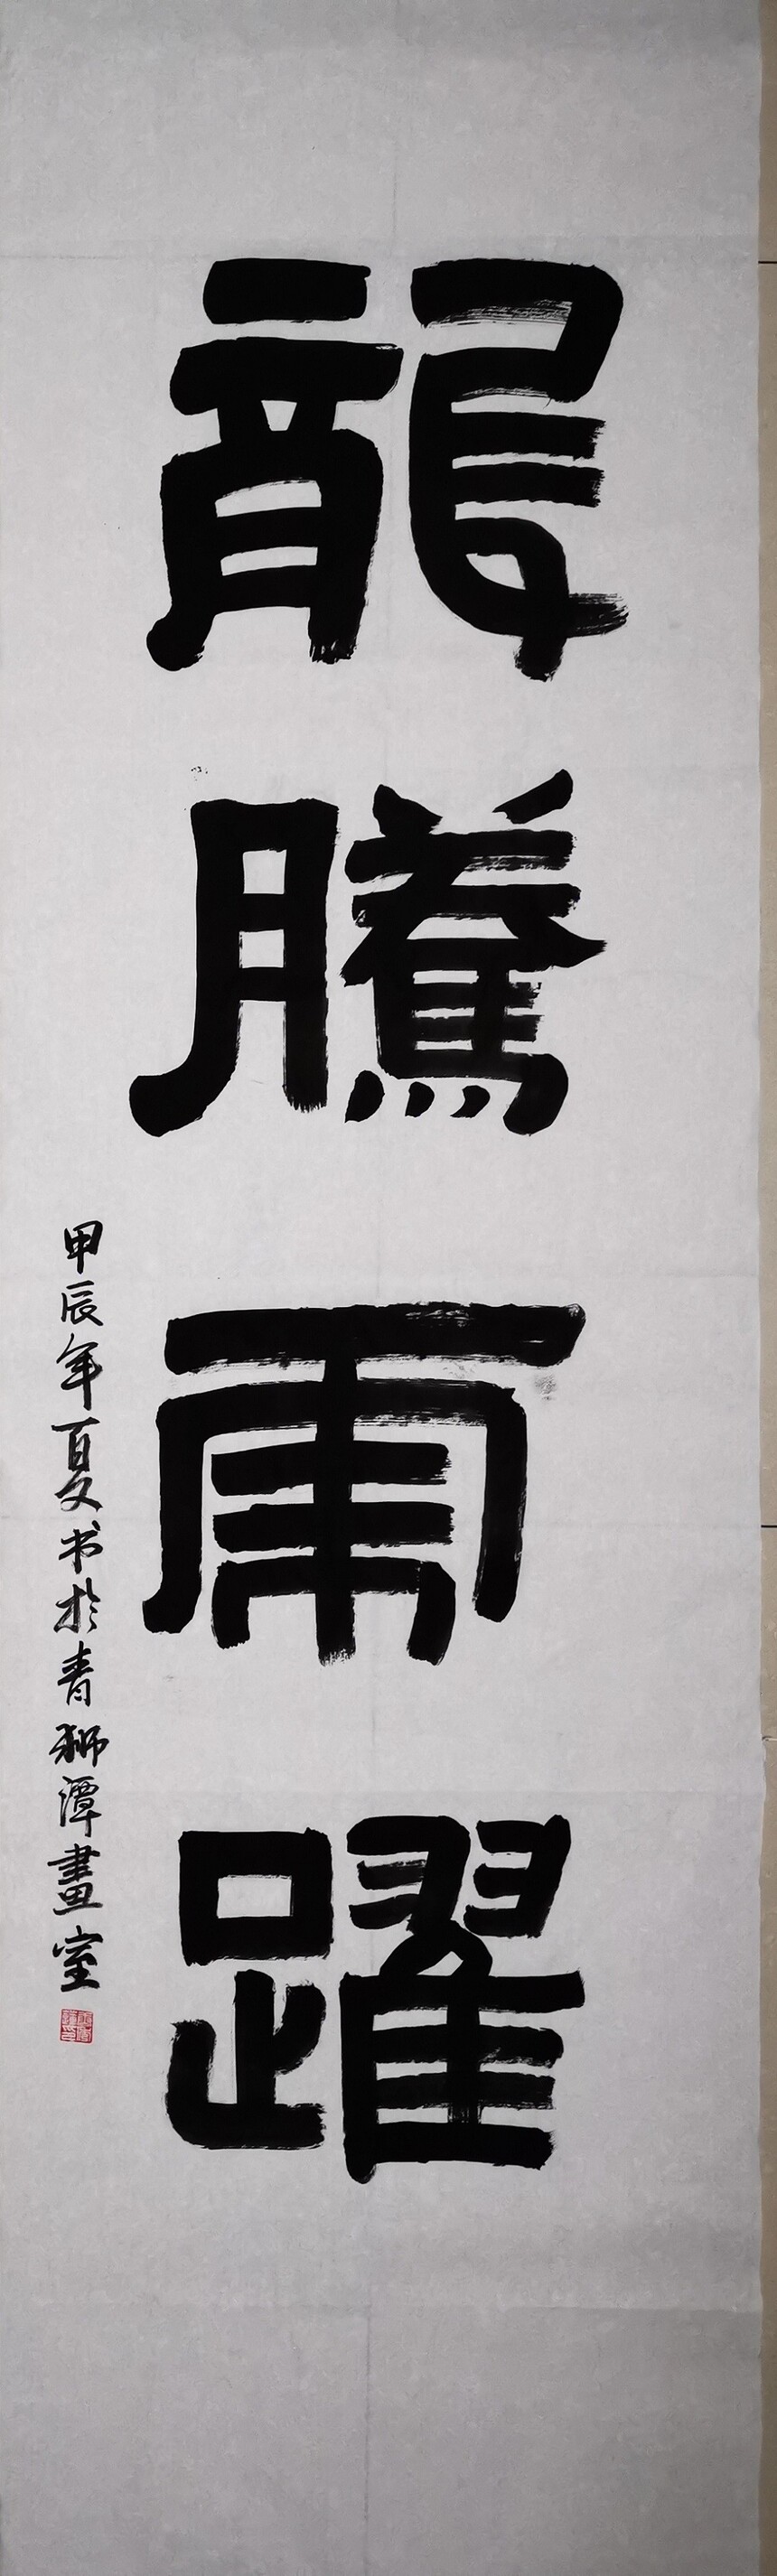 龍騰虎躍
甲辰年夏书於青狮潭畫室